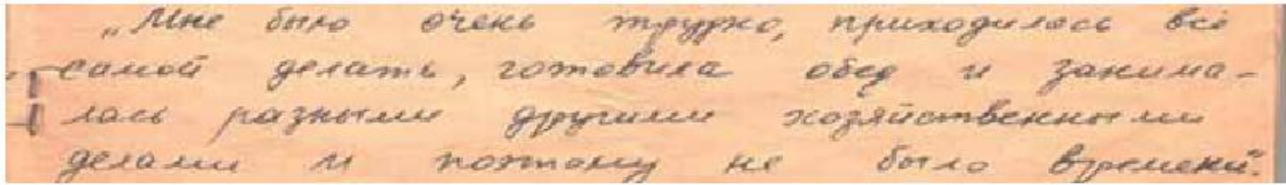 „Мне было очень трудно, приходилось всё
самой делать, готовила обед и занима-
лась разными другими хозяйственными
делами и поэтому не было времени“.